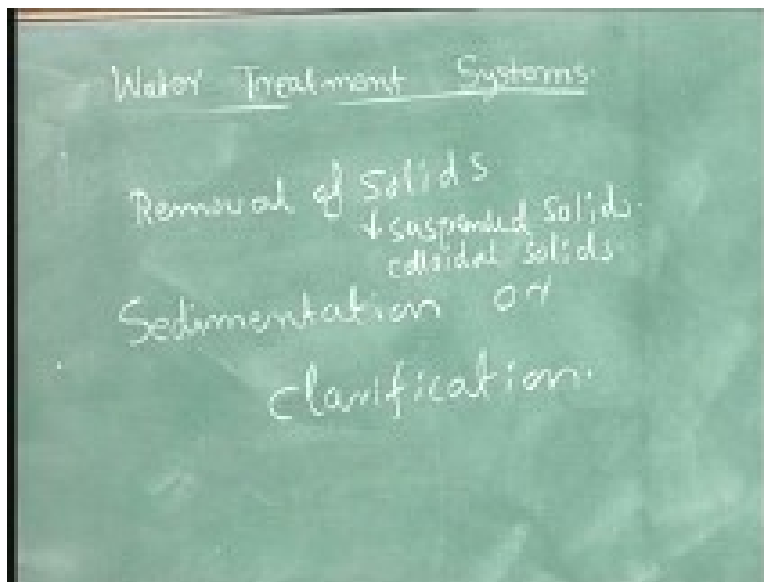 Water Treatment Systems.
Removal of Solids
↓ suspended solids.
colloidal solids.
Sedimentation or
Clarification.